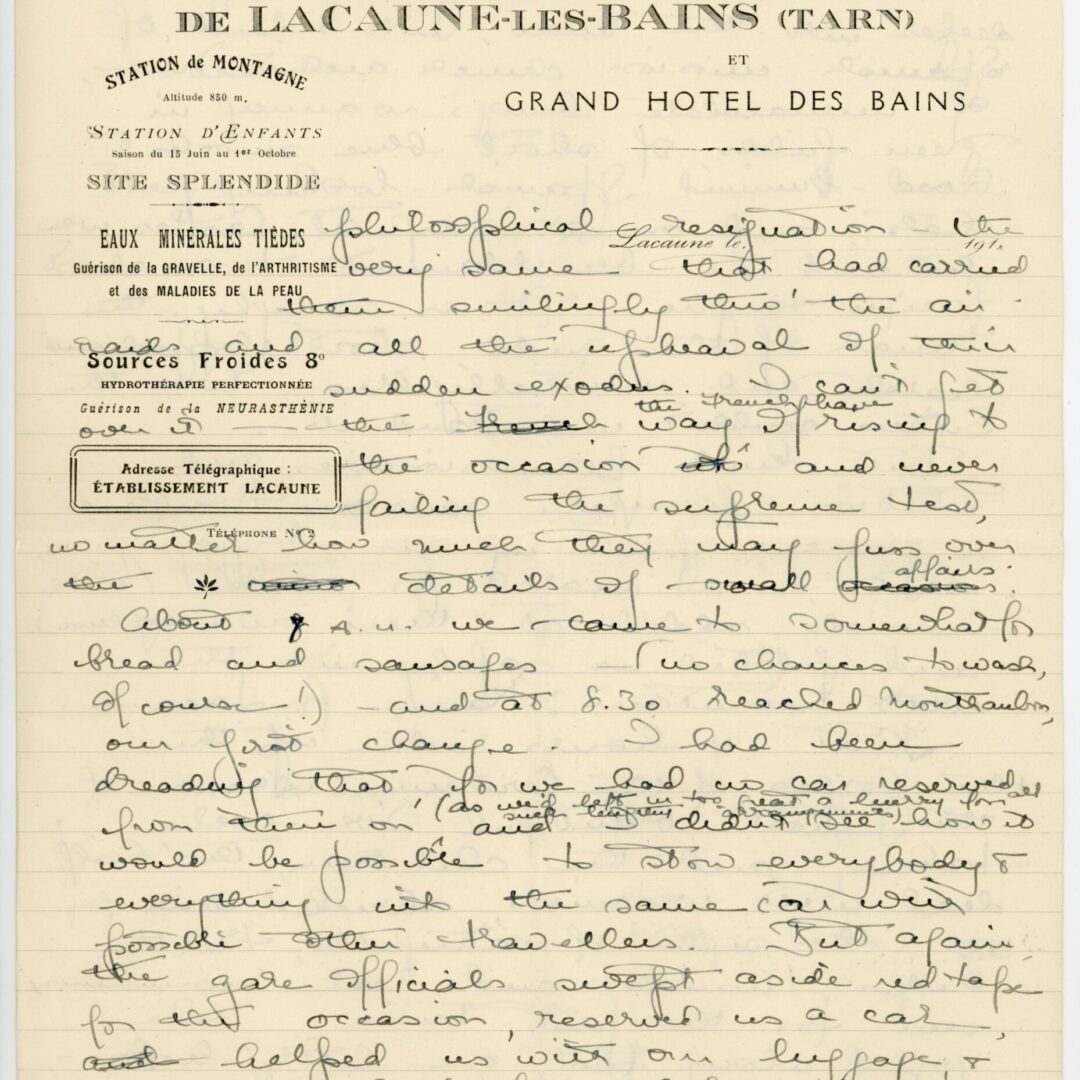 DE LACAUNE-LES-BAINS (TARN)
ET
GRAND HOTEL DES BAINS
STATION de MONTAGNE
Altitude 850 m.
STATION D'ENFANTS
Saison du 15 Juin au 1er Octobre
SITE SPLENDIDE
EAUX MINÉRALES TIÈDES
Guérison de la GRAVELLE, de l'ARTHRITISME
et des MALADIES DE LA PEAU
Sources Froides 8°
HYDROTHÉRAPIE PERFECTIONNÉE
Guérison de la NEURASTHÉNIE
Adresse Télégraphique :
ÉTABLISSEMENT LACAUNE
TÉLÉPHONE No 2
Lacaune le, 191
philosophical resignation the
very same that had carried
them smilingly thro' the air
raids and all the upheaval of their
sudden exodus. I can't get
over it — the French way of rising to
the French have
the occasion and never
failing the supreme test,
no matter how much they may fuss over
the details of small occasions.
affairs.
About 7 A.M. we came to somewhat for
bread and sausages — (no chances to wash,
of course!) — and at 8.30 reached Monthauban,
our first change. I had been
dreading that for we had no car reserved
(as we'd left in too great a hurry for
such lengthy arrangements)
from then on and I didn't see how it
would be possible to stow everybody &
everything into the same car with
possible other travellers. But again
the gare officials swept aside red tape
for the occasion, reserved us a car,
and helped us with our luggage, &